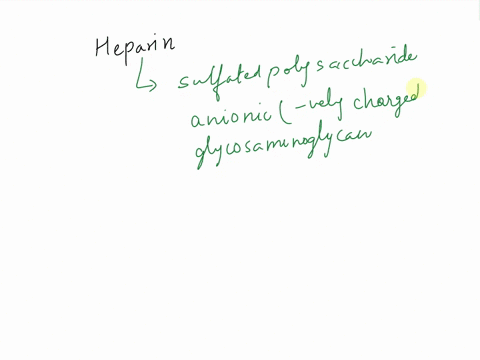 Heparin
sulfated polysaccharide
anionic (-vely charged
glycosaminoglycan